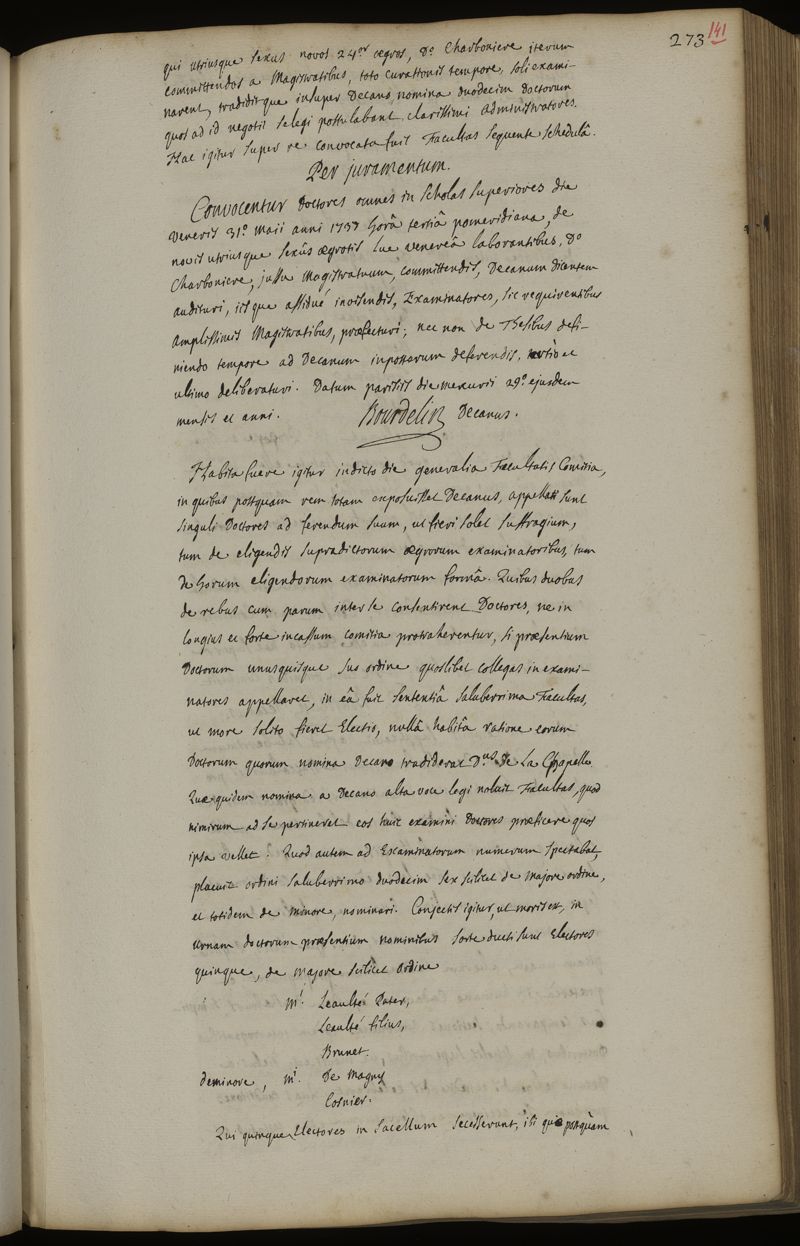 273 141
qui utriusque sexus novos 24.or ægros, Do Charboniere iterum
committendos a Magistratibus, toto curationis tempore, soli exami-
narent, tradiditque insuper Decano, nomina duodecim Doctorum
quos ad id negotii selegi postulabant clarissimi Administratores.
Hac igitur super re convocata fuit Facultas sequente schedulâ.
Per juramentum.
Convocentur Doctores omnes in scholas superiores die
Veneris 31.o Maii anni 1737 horâ tertiâ pomeridiana, de
novis utriusque sexûs ægrotis lue venereâ laborantibus, Do
Charboniere, jussu Magistratuum, committendis, Decanum dicentem
audituri, iisque assiduè invisendis, Examinatores, sic requirentibus
amplissimis Magistratibus, præfecturi; nec non de Thesibus defi-
niendo tempore ad Decanum inpostarum deferendis, tertiò et
ultimo deliberaturi. Datum parisiis die mercurii 29.o ejusdem
mensis et anni. Bourdelin Decanus.
Habita fuere igitur indicto die generalia Facultatis Comitia,
in quibus postquam rem totam exposuisset Decanus, appellati sunt
singuli Doctores ad ferendum suum, ut fieri solet suffragium,
tum de eligendis supradictorum ægrorum examinatoribus, tum
de horum eligendorum examinatorum formâ. Quibus duobus
de rebus cum parum inter se consentirent Doctores, ne in
longius et forte incassum comitia protraherentur, si præsentium
Doctorum unusquisque suo ordine quoslibet collegas in exami-
natores appellaret, in eâ fuit sententiâ saluberrima Facultas,
ut more solito fieret Electio, nullâ habitâ ratione eorum
Doctorum quorum nomina Decano tradiderat D.us De La Chapelle
Quæ quidem nomina a Decano alta voce legi noluit Facultas, quod
nimirum ad se pertineret eos huic examini Doctores præficere quos
ipsa vellet. Quod autem ad Examinatorum numerum spectabat,
placuit ordini saluberrimo duodecim sex scilicet de majore ordine,
et totidem de minore, nominari. Conjectis igitur, ut moris est, in
urnam doctorum præsentium nominibus sorte ducti sunt Electores
quinque, de majore scilicet ordine
M.i Leaulté Pater,
Leaulté filius,
Brunet.
de minore, M.i De Magny
Cosnier.
Qui quinque Electores in sacellum secesserunt, ibi que postquàm